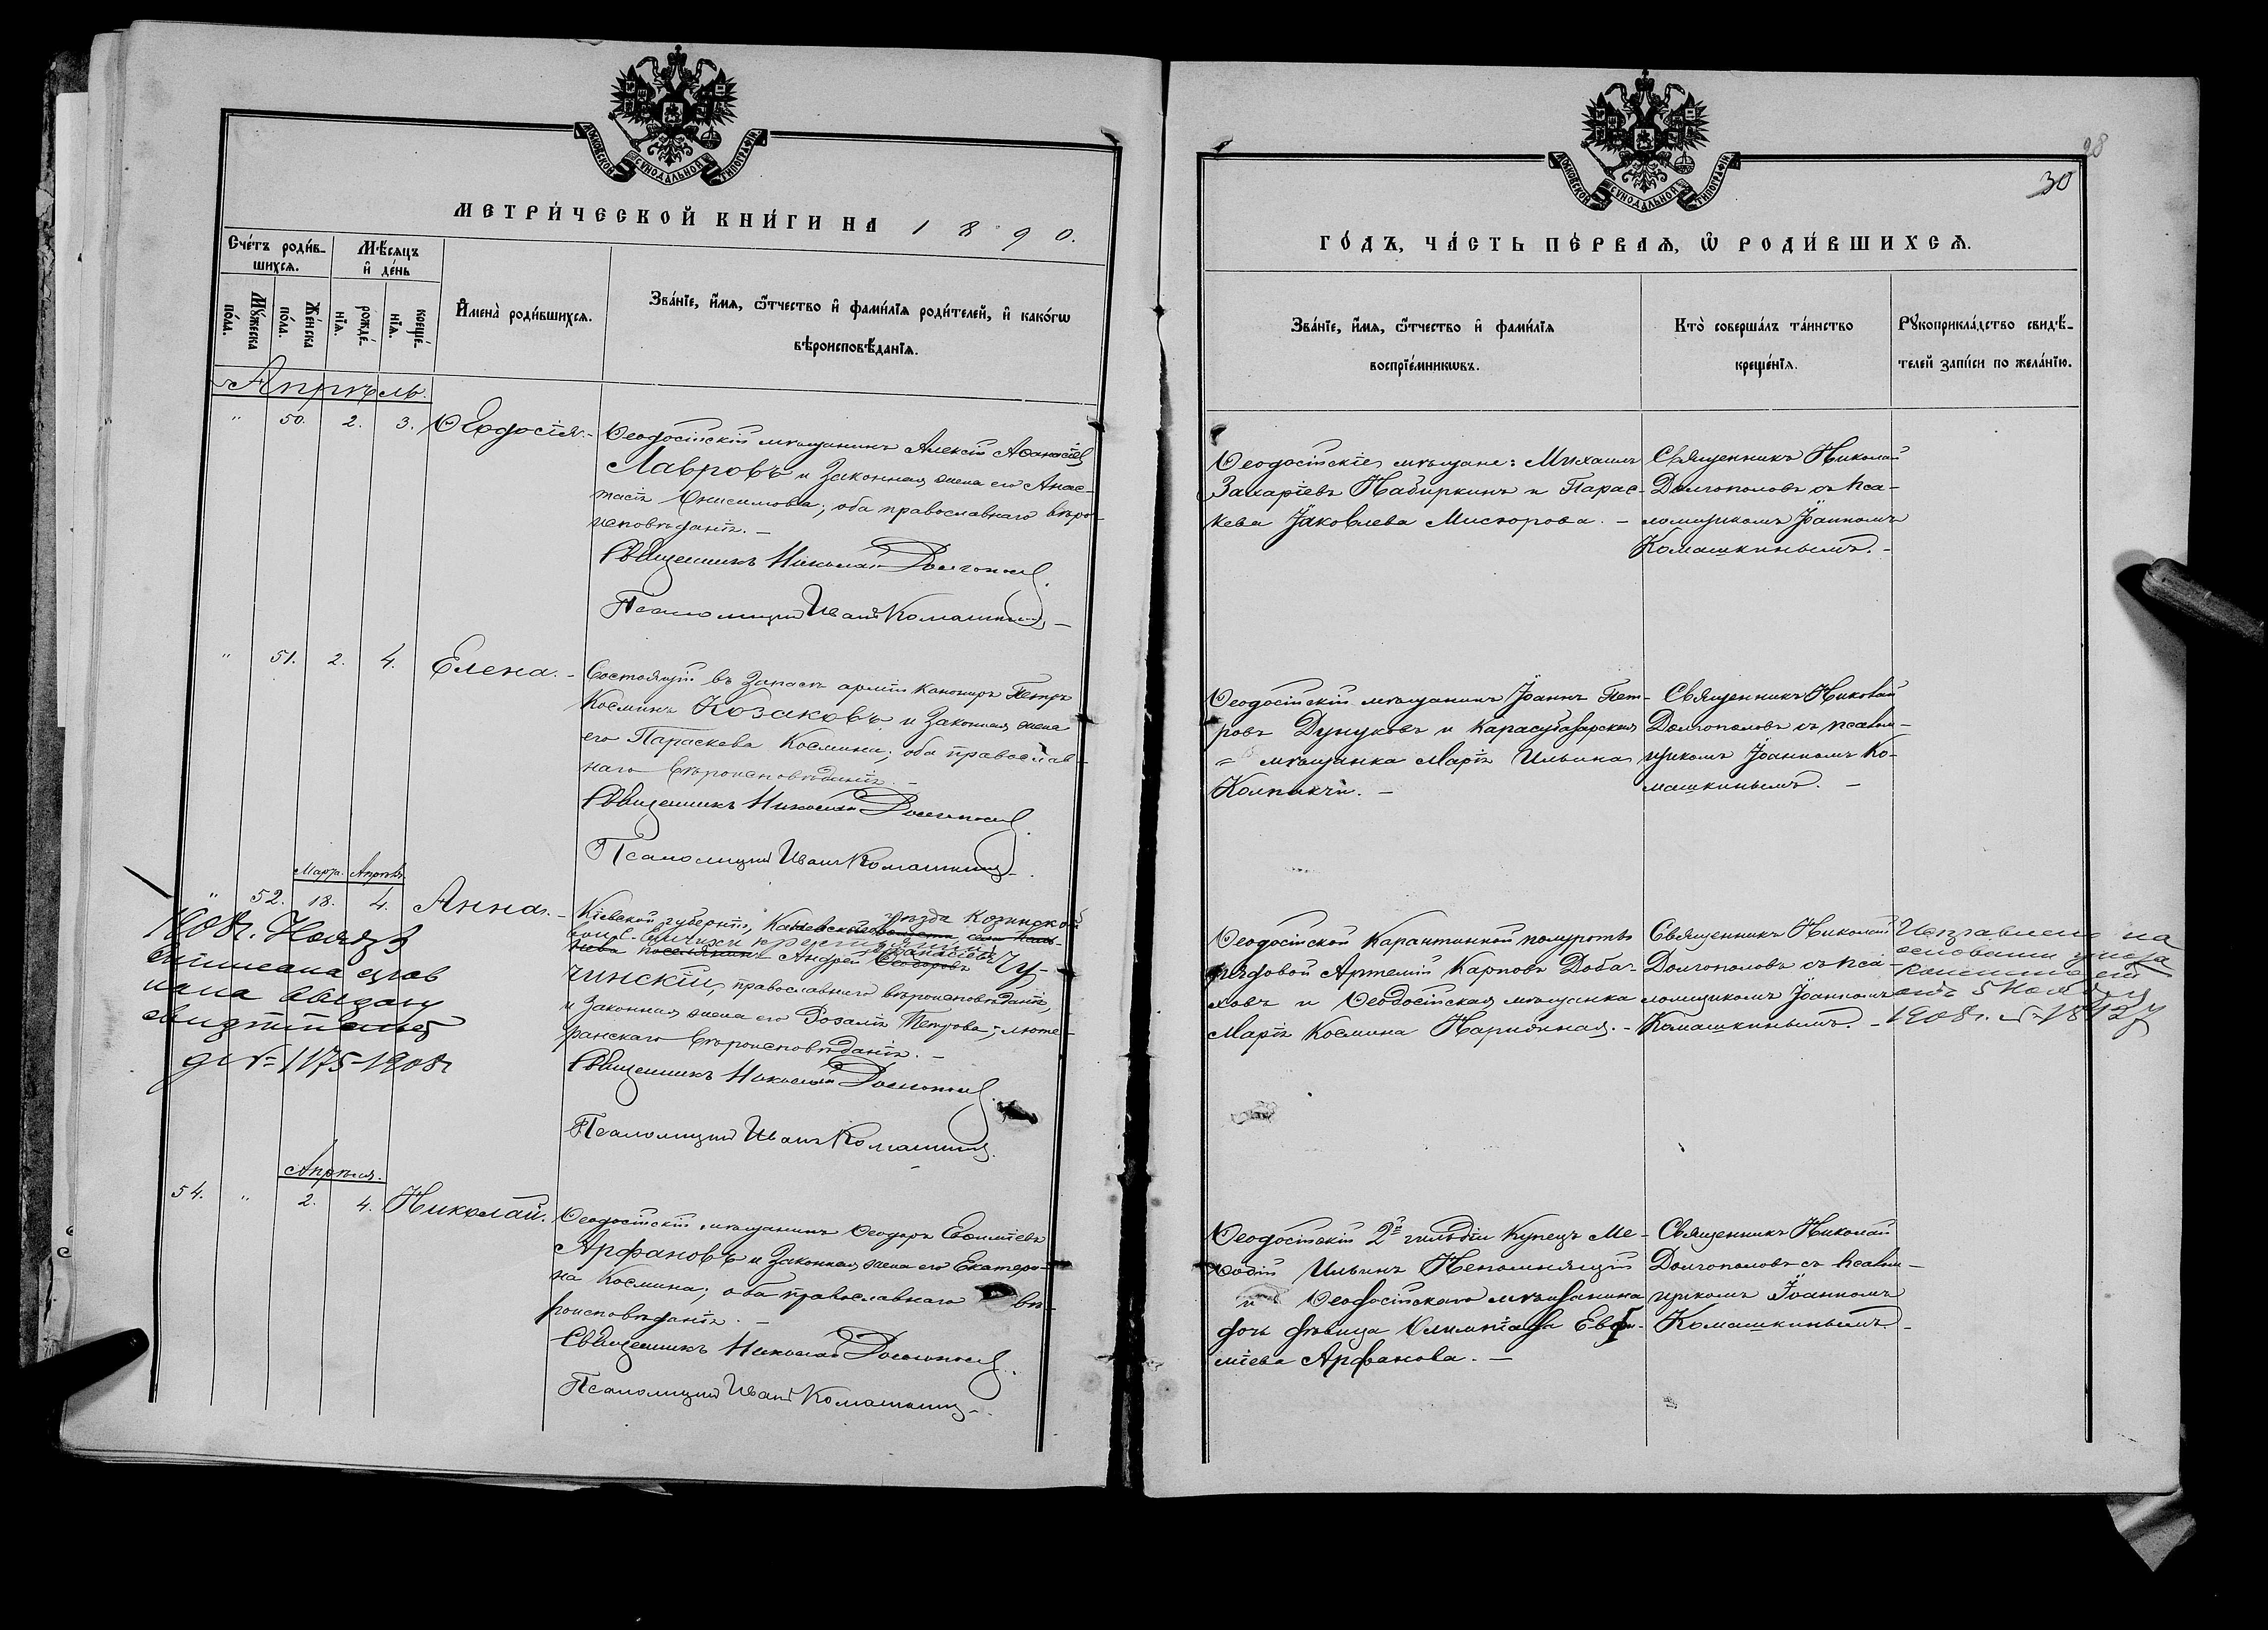 МОСКОВСКОЙ СѴНОДАЛЬНОЙ ТИПОГРАФІИ
МЕТРИ́ЧЕСКОЙ КНИ́ГИ НА 1890.
Сче́тъ роди́вшихсѧ.
Мѣ́сяцъ и҆ де́нь
Мꙋ́жеска по́ла.
Же́нска по́ла.
рожде́нїѧ.
креще́нїѧ.
И҆мена̀ роди́вшихсѧ.
Зва́нїе, и҆́мѧ, ѻ҆́тчество и҆ фами́лїѧ роди́телей, и҆ како́гѡ
вѣроисповѣ́данїѧ.
Апрѣль.
" 50. 2. 3. Ѳеодосія.
Ѳеодосійскій мѣщанинъ Алексій Аѳанасіевъ
Лавровъ и законная жена его Анас-
тасія Онисимова; оба православнаго вѣро-
исповѣданія. –
Священникъ Николай Долгополовъ.
Псаломщикъ Иванъ Комашкинъ. –
" 51. 2. 4. Елена. –
Состоящій въ запасѣ арміи канониръ Петръ
Косминъ Козаковъ и законная жена
его Параскева Космина; оба православ-
наго вѣроисповѣданія. –
Священникъ Николай Долгополовъ.
Псаломщикъ Иванъ Комашкинъ. –
Марта. Апрѣль.
" 52. 18. 4. Анна. –
Кіевской губерніи, Каневскаго уѣзда Козинской
Андрей
Чу-
чинскій, православнаго вѣроисповѣданія,
и законная жена его Розалія Петрова, люте-
ранскаго вѣроисповѣданія. –
Священникъ Николай Долгополовъ.
Псаломщикъ Иванъ Комашкинъ.
1908г. Нояб 3
№ 1175-1908г
Апрѣля.
54. " 2. 4. Николай.
Ѳеодосійскій мѣщанинъ Ѳеодоръ Евѳиміевъ
Арфановъ и законная жена его Екатери-
на Космина; оба православнаго вѣ-
роисповѣданія. –
Священникъ Николай Долгополовъ.
Псаломщикъ Иванъ Комашкинъ. –
МОСКОВСКОЙ СѴНОДАЛЬНОЙ ТИПОГРАФІИ
28
30
ГО́ДЪ, ЧА́СТЬ ПЕ́РВАѦ, Ѡ҆ РОДИ́ВШИХСѦ.
Зва́нїе, и҆́мѧ, ѻ҆́тчество и҆ фами́лїѧ
воспрїе́мникѡвъ.
Кто̀ соверша́лъ та́инство
креще́нїѧ.
Рꙋкоприкла́дство свидѣ́-
телей за́писи по жела́нїю.
Ѳеодосійскіе мѣщане: Михаилъ
Захаріевъ Набиркинъ и Парас-
кева Іаковлева Мисюрова. –
Священникъ Николай
Долгополовъ съ пса-
ломщикомъ Іоанномъ
Комашкинымъ. –
Ѳеодосійскій мѣщанинъ Іоаннъ Пет-
ровъ Дунуковъ и Карасубазарская
мѣщанка Марія Ильина
Колпакчи. –
Священникъ Николай
Долгополовъ съ псалом-
щикомъ Іоанномъ Ко-
машкинымъ. –
Ѳеодосійской карантинной полуроты
рядовой Артемій Карповъ Доба-
ховъ и Ѳеодосійская мѣщанка
Марія Космина Нарижная. –
Священникъ Николай
Долгополовъ съ пса-
ломщикомъ Іоанномъ
Комашкинымъ. –
Исправлено на
основаніи указа
Консисторіи
отъ 5 Ноября
1908г.
Ѳеодосійскій 2й гильдіи купецъ Ме-
ѳодій Ильинъ Непомнящій
и Ѳеодосійскаго мѣщанина
дочь дѣвица Олимпіада Евѳи-
міева Арфанова. –
Священникъ Николай
Долгополовъ съ псалом-
щикомъ Іоанномъ
Комашкинымъ. –